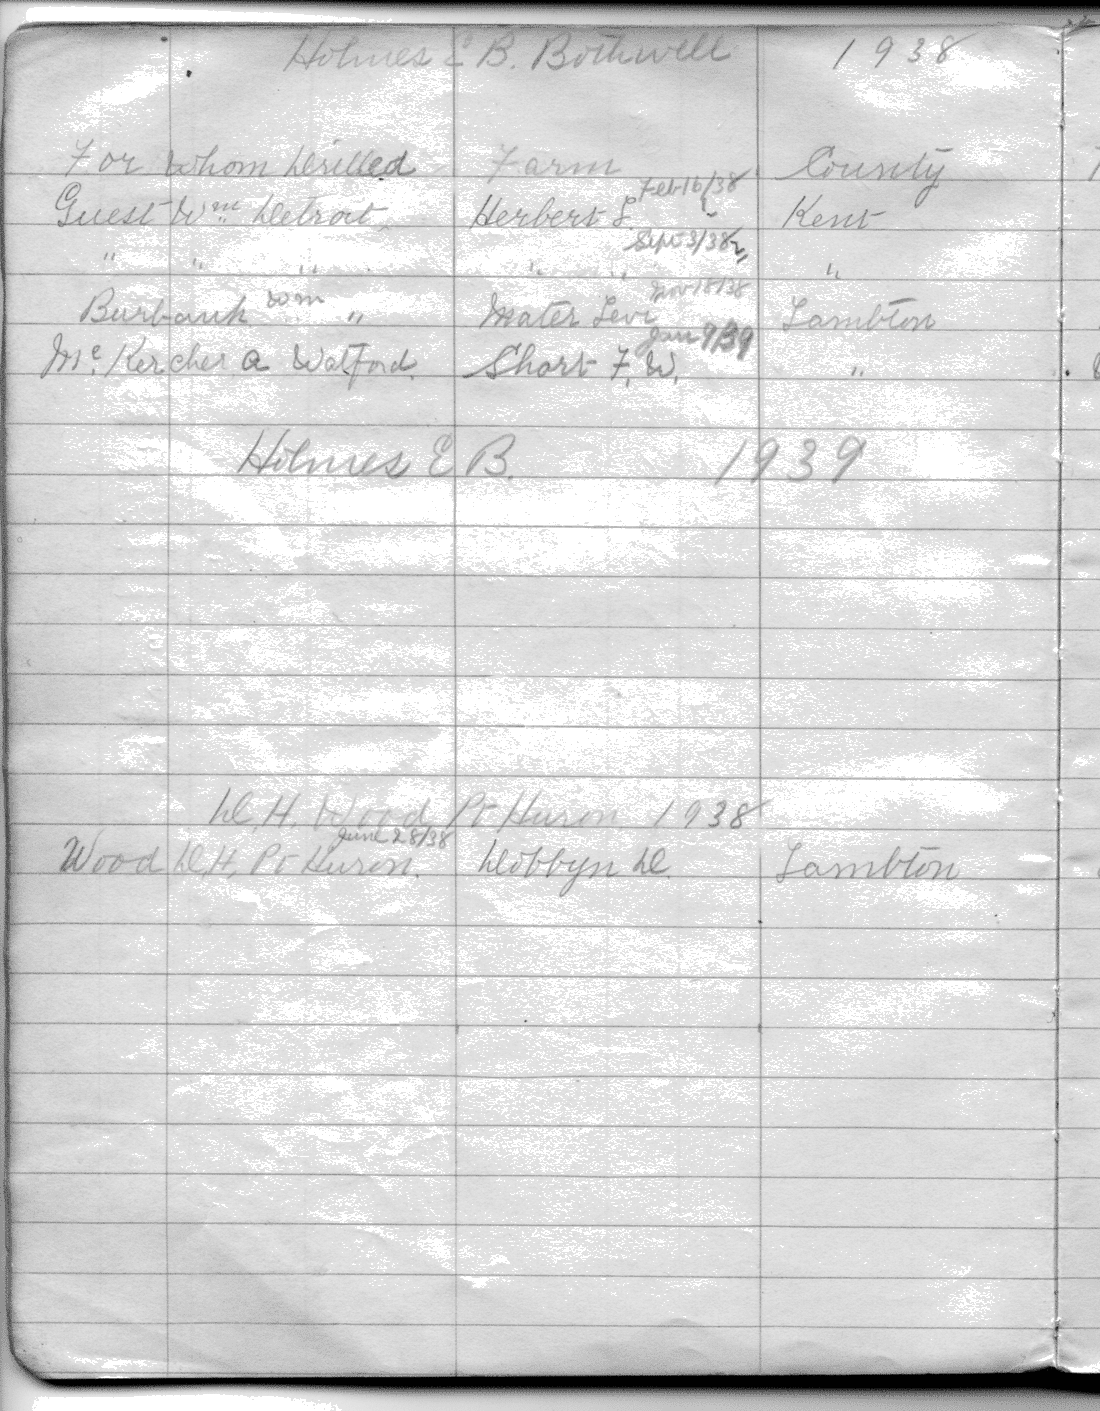 Holmes E B. Bothwell 1938
For Whom Drilled Farm County
Feb 16/38
Guest Wm Detroit Herbert L 1 Kent
Sept 3/38
" " " " " 2 "
Nov 18/38
Burbank Wm " Mater Levi Lambton
Jan 9/39
Mc Kercher A Watford. Short F. W. "
Holmes E B. 1939
D. H. Wood Pt Huron 1938
June 28/38
Wood D. H. Pt Huron. Dobbyn D. Lambton